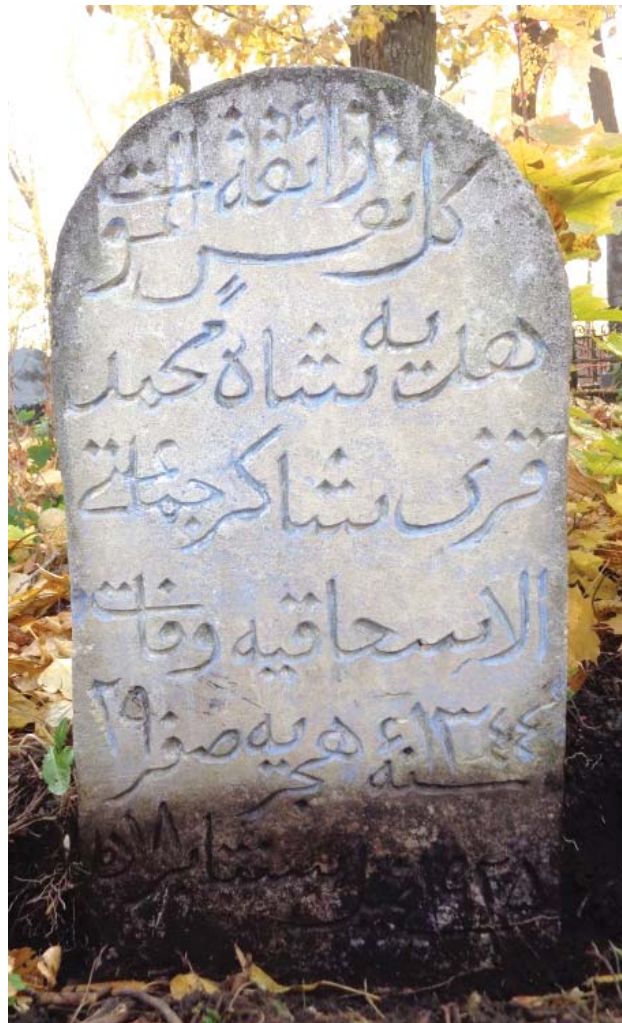 كل نفسٍ ذائقة الموت
هديه شاه محمد
قزى شاكر جماعتى
الاسحاقيه وفات
سنه ١٣٤٤ هجريه صفر ٢٩